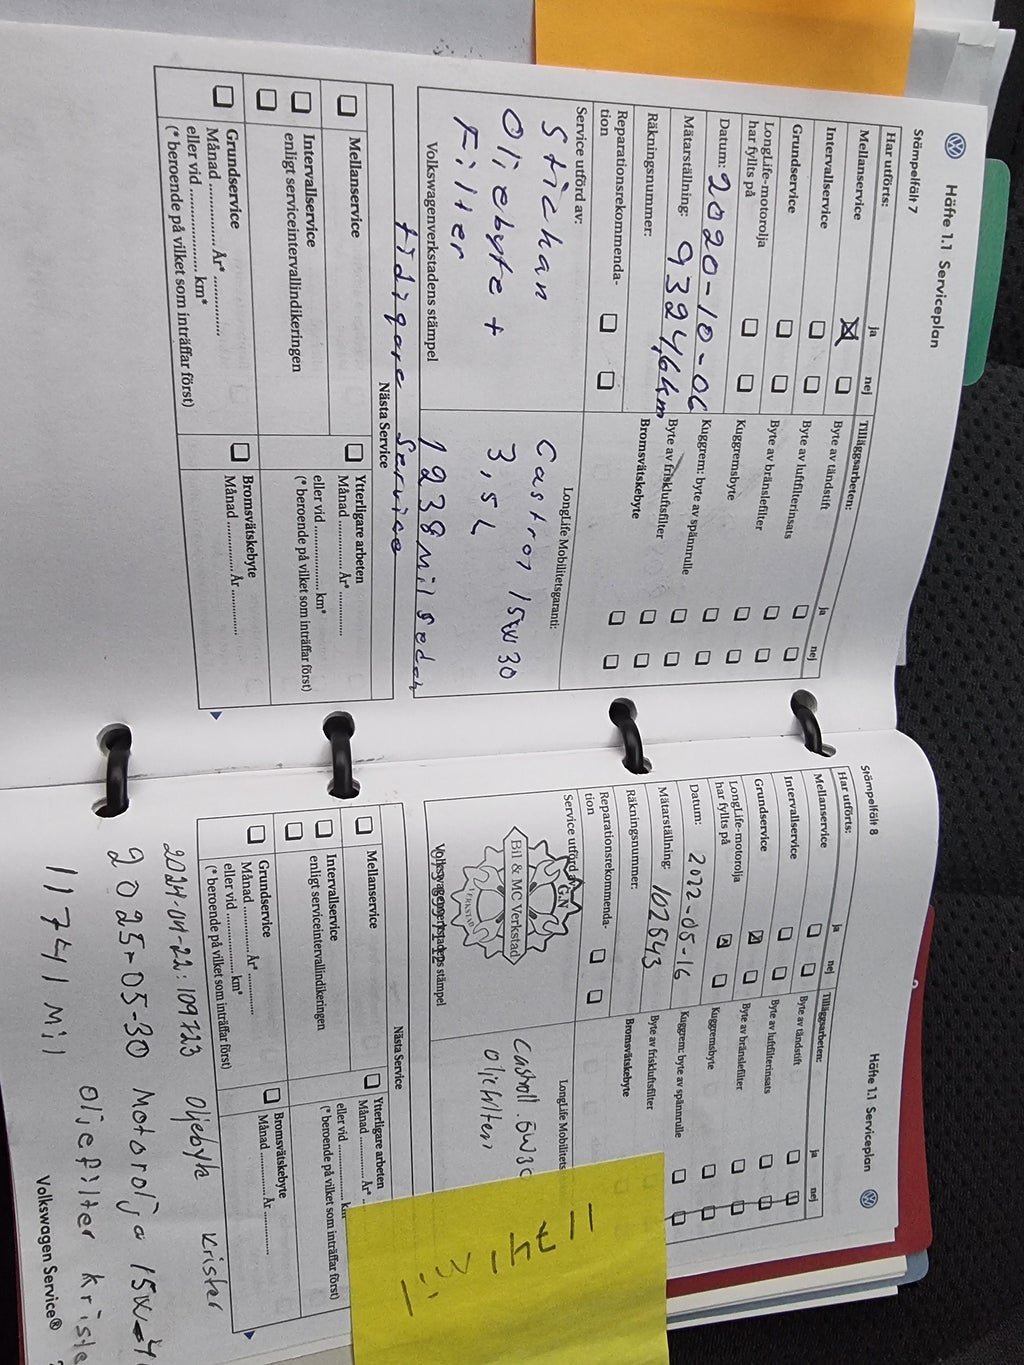 Häfte 1.1 Serviceplan
Stämpelfält 7
Har utförts:
ja
nej
Mellanservice
Intervallservice
Grundservice
LongLife-motorolja
har fyllts på
Datum: 2020-10-06
Mätarställning: 93246 km
Räkningsnummer:
Reparationsrekommenda-
tion
Tilläggsarbeten:
ja
nej
Byte av tändstift
Byte av luftfilterinsats
Byte av bränslefilter
Kuggremsbyte
Kuggrem: byte av spännrulle
Byte av friskluftsfilter
Bromsvätskebyte
Service utförd av:
Oliebyte +
Filter
Volkswagenverkstadens stämpel
LongLife Mobilitetsgaranti:
Castrol 15W30
3,5L
1238 mil sedan
tidigare service
Nästa Service
Mellanservice
Intervallservice
enligt serviceintervallindikeringen
Grundservice
Månad ............... År* ...............
eller vid ............... km*
(* beroende på vilket som inträffar först)
Ytterligare arbeten
Månad ............... År* ...............
eller vid ............... km*
(* beroende på vilket som inträffar först)
Bromsvätskebyte
Månad ............... År ...............
Häfte 1.1 Serviceplan
Stämpelfält 8
Har utförts:
ja
nej
Mellanservice
Intervallservice
Grundservice
LongLife-motorolja
har fyllts på
Datum: 2022-05-16
Mätarställning: 102643
Räkningsnummer:
Reparationsrekommenda-
tion
Tilläggsarbeten:
ja
nej
Byte av tändstift
Byte av luftfilterinsats
Byte av bränslefilter
Kuggremsbyte
Kuggrem: byte av spännrulle
Byte av friskluftsfilter
Bromsvätskebyte
Service utförd
G.N
Bil & MC Verkstad
VERKSTAD
Volkswagenverkstadens stämpel
LongLife Mobilitets
Castroll 5W30
oliefilter
Nästa Service
Mellanservice
Intervallservice
enligt serviceintervallindikeringen
Grundservice
Månad ............... År* ...............
eller vid ............... km*
(* beroende på vilket som inträffar först)
Ytterligare arbeten
Månad ............... År*
eller vid ............... km
(* beroende på vilket som inträffar först)
Bromsvätskebyte
Månad ............... År ...............
11741 mil
2024-04-22: 109723 Oljebyte Krister
2025-05-30 Motorolja 15W-4
11741 Mil oljefilter kriste
Volkswagen Service®